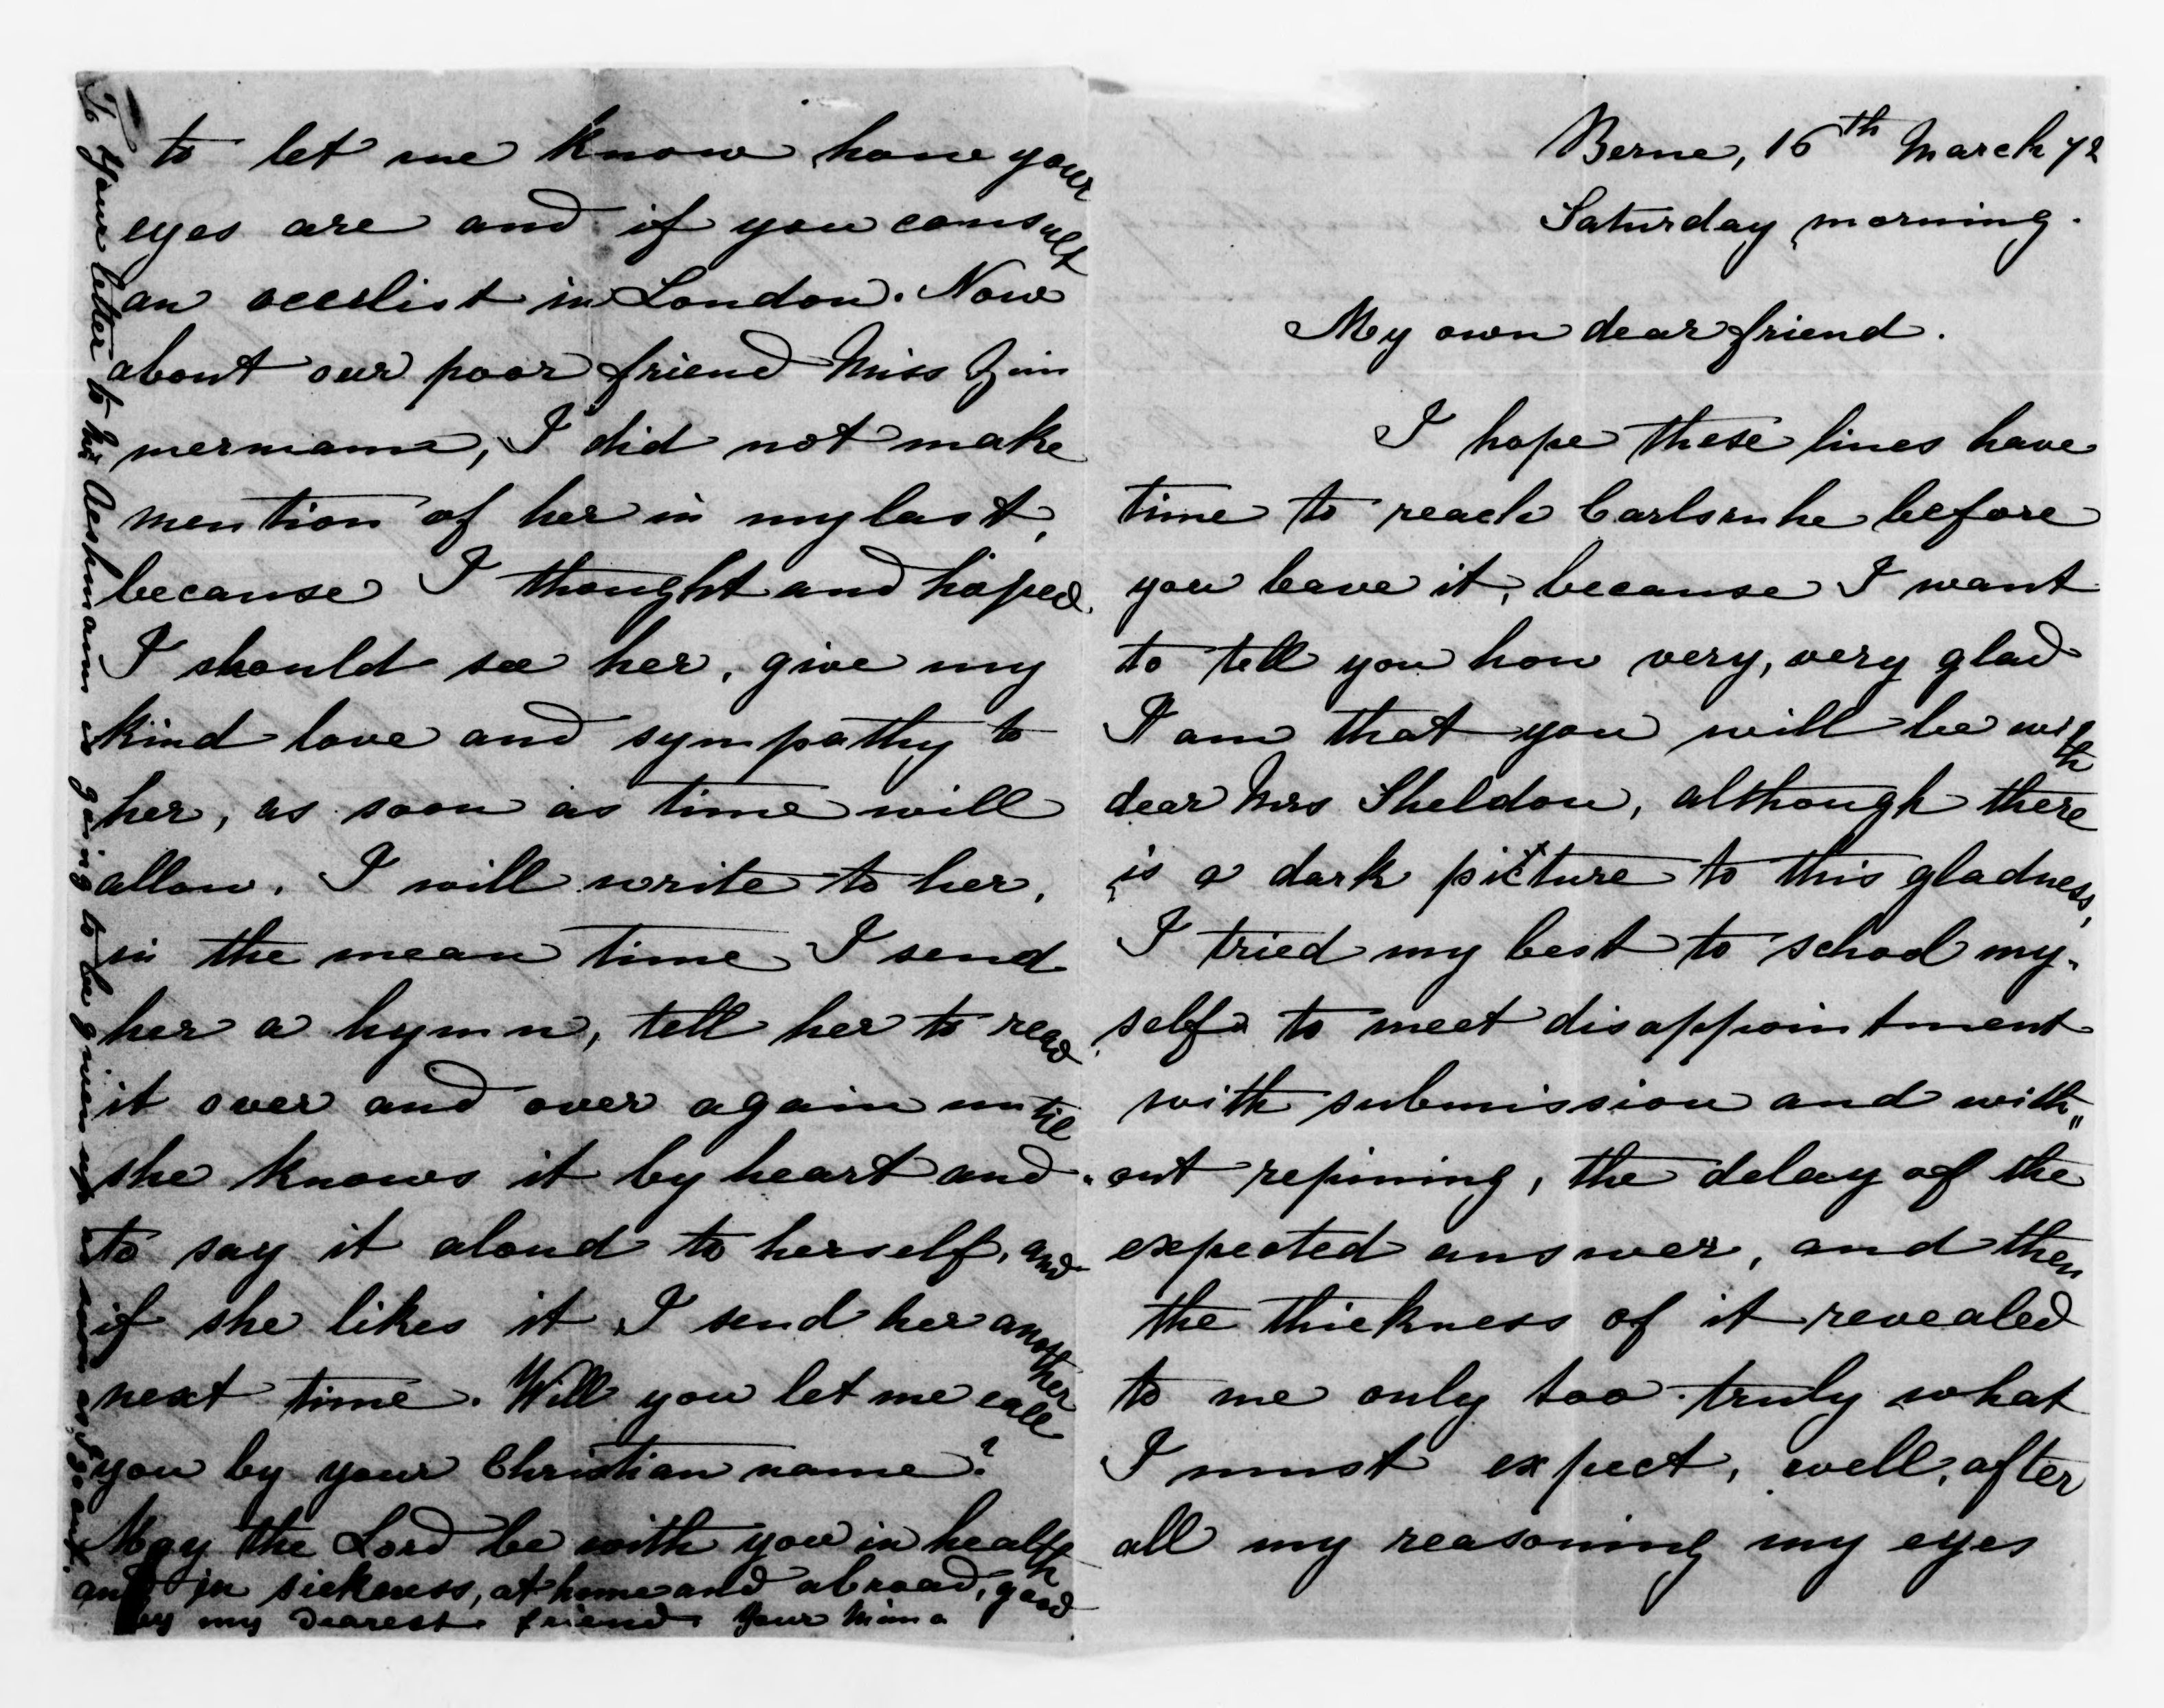 Berne, 16th March 72
Saturday morning.
My own dear friend.
I hope these lines have
time to reach Carlsruhe before
you leave it, because I want
to tell you how very, very glad
I am that you will be with
dear Mrs Sheldon, although there
is a dark picture to this gladness,
I tried my best to school my-
self to meet disappointment
with submission and with"
"out repining, the delay of the
expected answer, and then
the thickness of it revealed
to me only too truly what
I must expect, well, after
all my reasoning my eyes
to let me know how your
eyes are and if you consult
an occulist in London. Now
about our poor friend Miss Zim
mermann, I did not make
mention of her in my last,
because I thought and hoped
I should see her, give my
kind love and sympathy to
her, as soon as time will
allow. I will write to her,
in the mean time I send
her a hymn, tell her to read
it over and over again until
she knows it by heart and
to say it aloud to herself, and
if she likes it I send her another
next time. Will you let me call
you by your Christian name?
May the Lord be with you in health
and in sickness, at home and abroad, good
by my dearest friend. Your Mima
To your letter to Mr Aeshmann is going to be given up as soon as I go out.